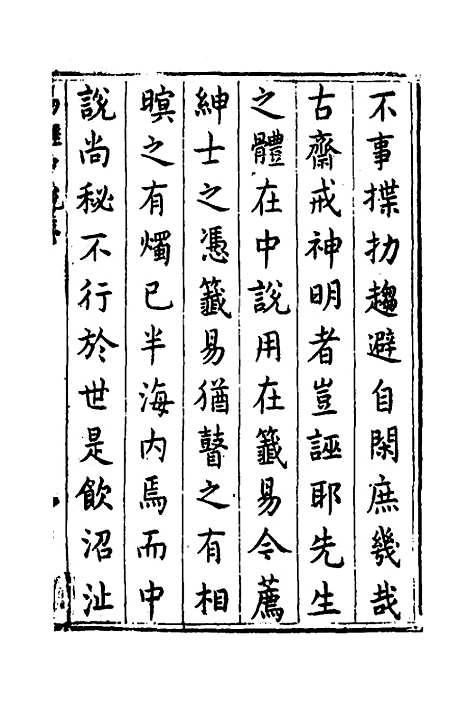 不事揲扐趨避自閑庶幾哉
古齋戒神明者豈誣耶先生
之體在中說用在籤易今薦
紳士之憑籤易猶瞽之有相
暝之有燭已半海内焉而中
說尚秘不行於世是飲沼沚